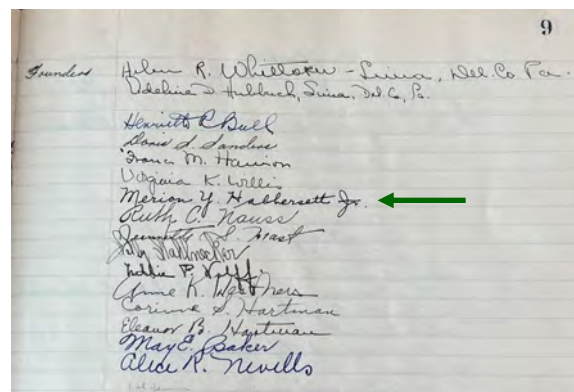 9
Founders Helen R. Whittaker - Lima, Del. Co Pa.
Hubbuch, Lima, Del. Co, Pa.
Henrietta C Bull
Doris S. Sanders
Frances M. Harrison
Virginia K. Willis
Merion Y. Habbersett Jr.
Ruth C. Nauss
Jeannette S. Mast
P. Wolff
Anne K.
Corinne S. Hartman
Eleanor B. Hartman
May E. Baker
Alice R. Nevells